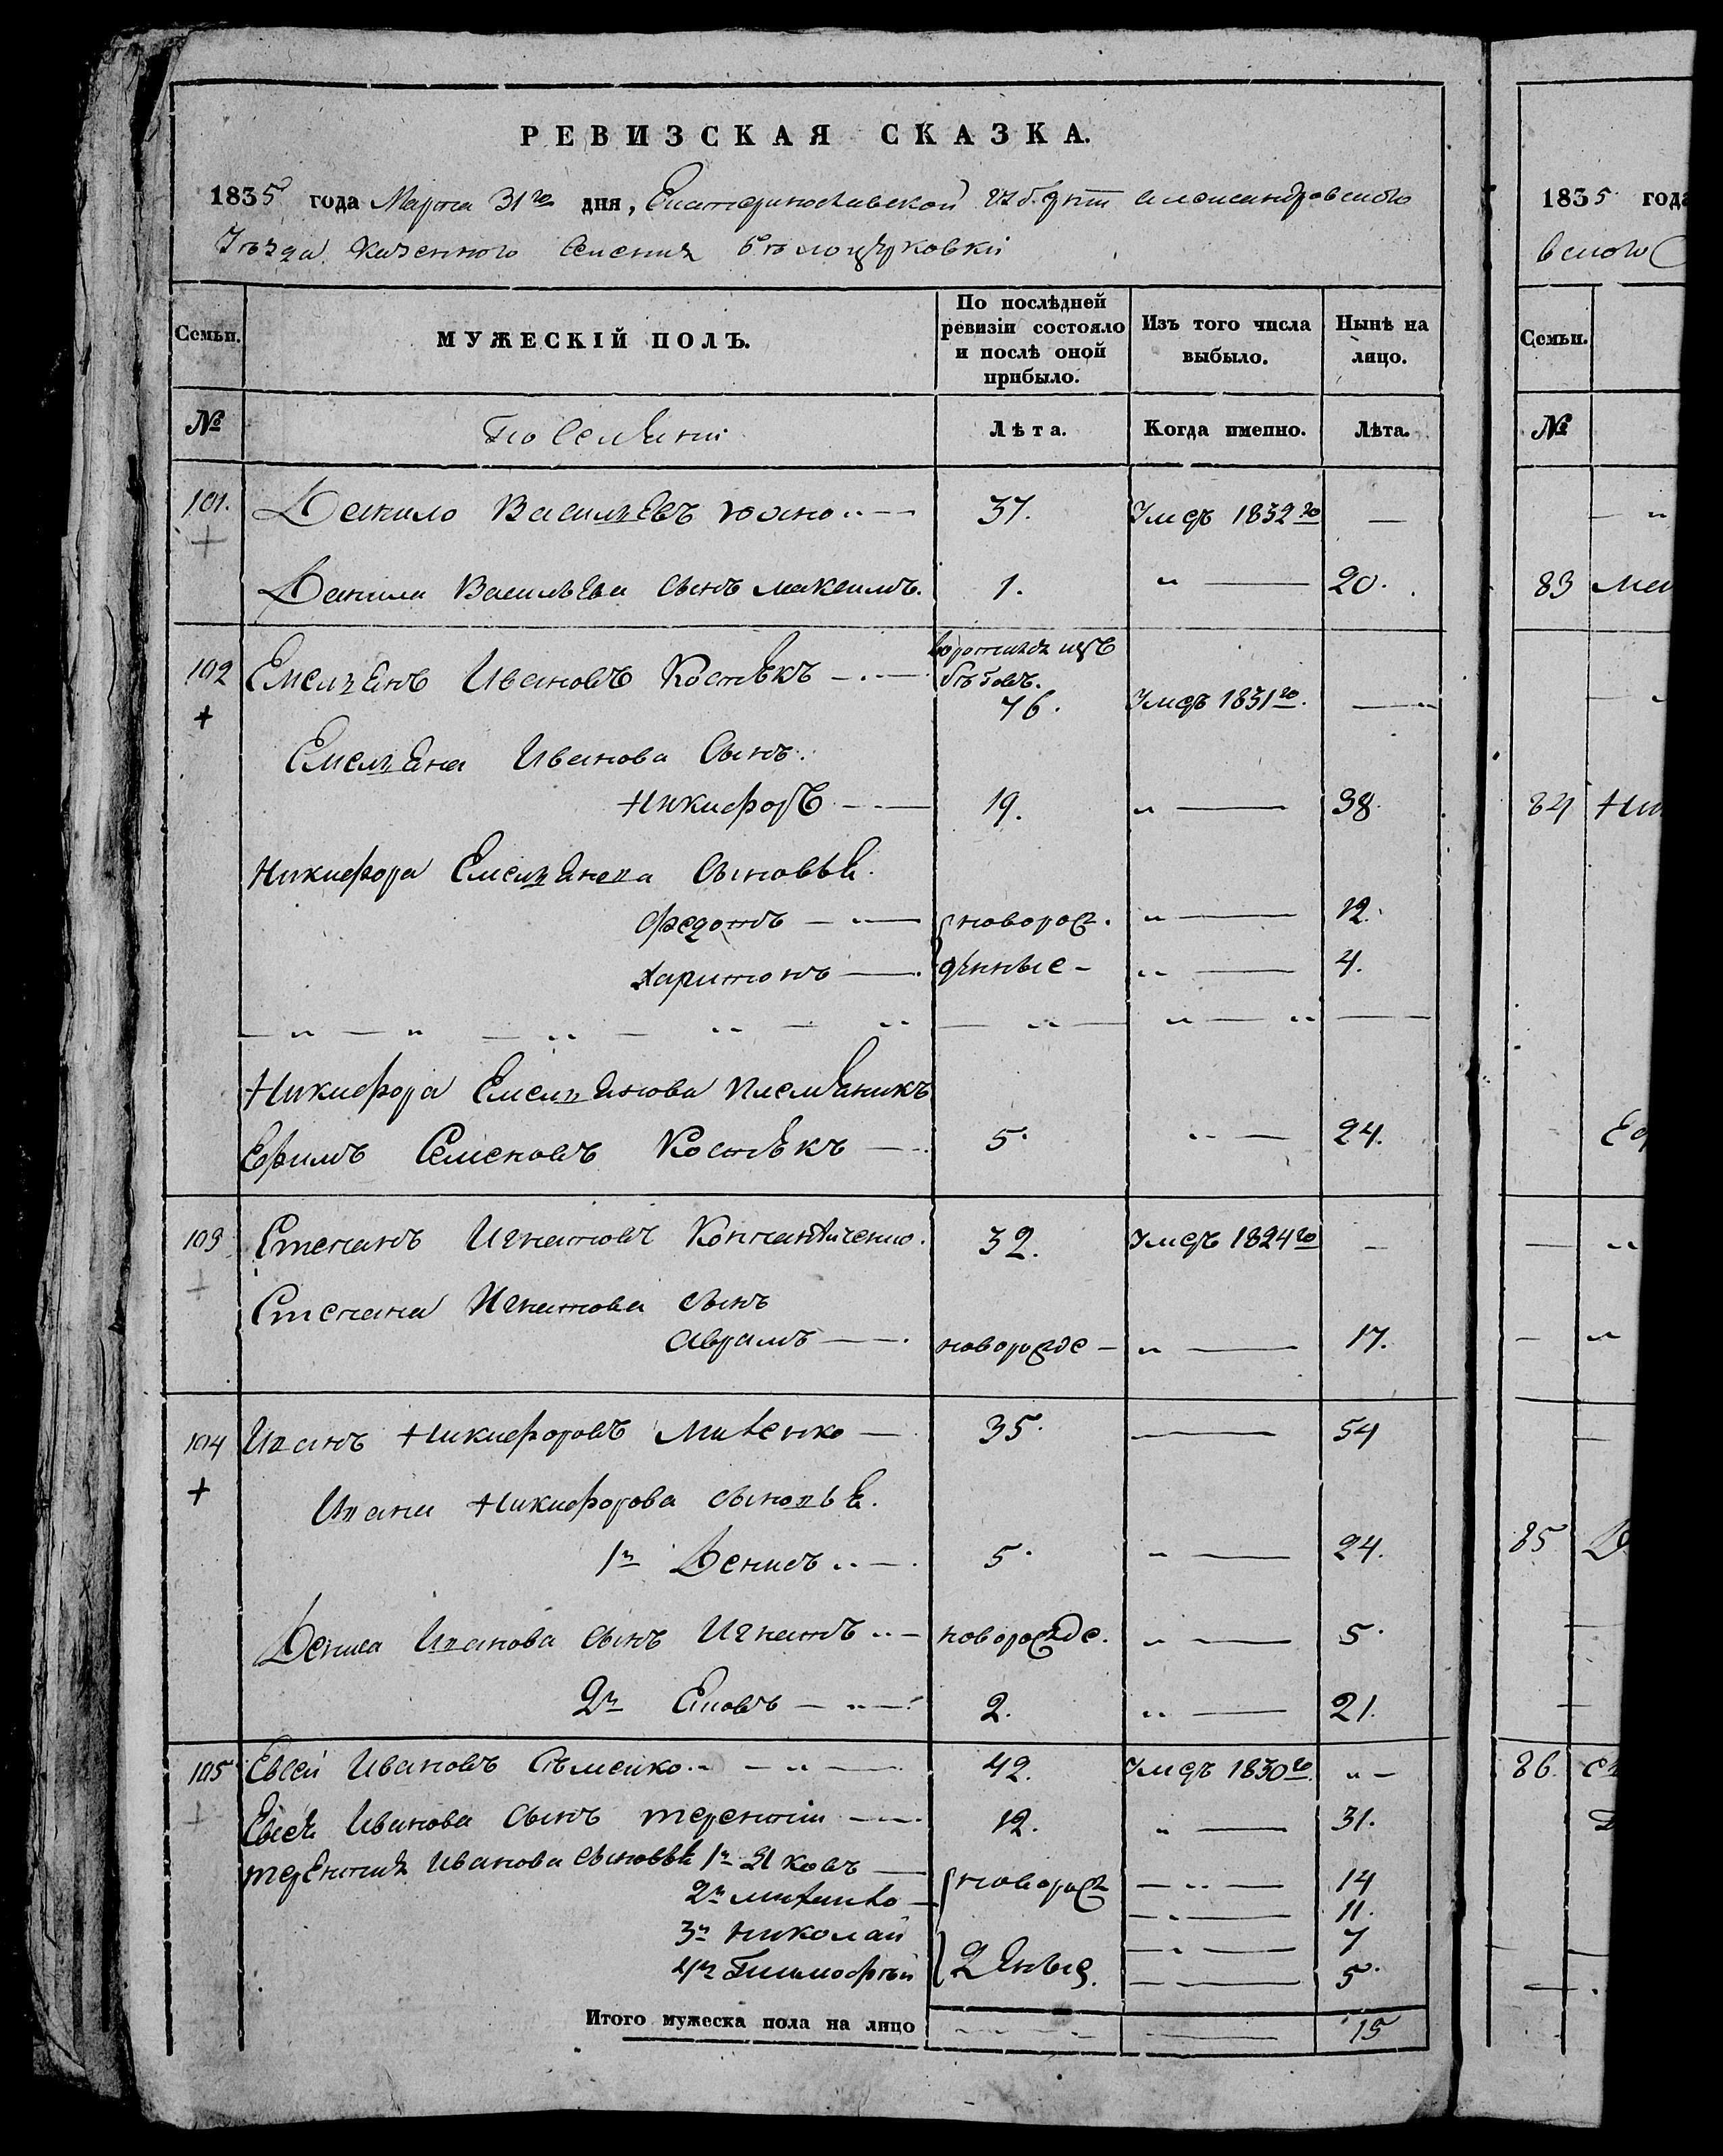 РЕВИЗСКАЯ СКАЗКА.
1835 года Марта 31го дня, Екатеринославской губернiи Александровского
Уѣзда казенного Селенiя бѣлоцерковки
Семьи.
МУЖЕСКIЙ ПОЛЪ.
По послѣдней ревизiи состояло и послѣ оной прибыло.
Изъ того числа выбыло.
Нынѣ на лицо.
№
Поселяни
Лѣта.
Когда именно.
Лѣта.
101. Данило Васильевъ 37. Умеръ 1832го —
Данила Васильева сынъ максимъ. 1. „ — 20.
102 Емельянъ Ивановъ Костякъ — воротился изъ бѣговъ. 76. Умеръ 1831го. —
Емельяна Иванова Сынъ.
Никифоръ — 19. „ — 38.
Никифора Емельянова Сыновья.
Федотъ — новорож. „ — 12.
Харитонъ — денные — „ — 4.
Никифора Емельянова племяникъ
Ефимъ Семеновъ Костякъ — 5. „ — 24.
103 Степанъ Игнатовъ 32. Умеръ 1824го —
Степана Игнатова сынъ
Аврамъ — новорожде — „ — 17.
104 Иванъ Никифоровъ Михенко — 35. — 54
Ивана Никифорова сыновья.
1й Денисъ „ — 5. „ — 24.
Дениса Иванова сынъ Игнатъ „ — новорожде. „ — 5.
2й — „ — 2. „ — 21.
105 Евсей Ивановъ — „ — 42. Умеръ 1830го. „ —
Евсея Иванова Сынъ терентiи — 12. „ — 31.
терентия Иванова сыновья 1й Яковъ — новорож — „ — 14
2й михаило — — „ — 11.
3й николай — „ — 7
4й Тимофѣй денные. — — 5.
Итого мужеска пола на лицо — — 15
1835 года
вского
Семьи.
№
83
84
85
86.